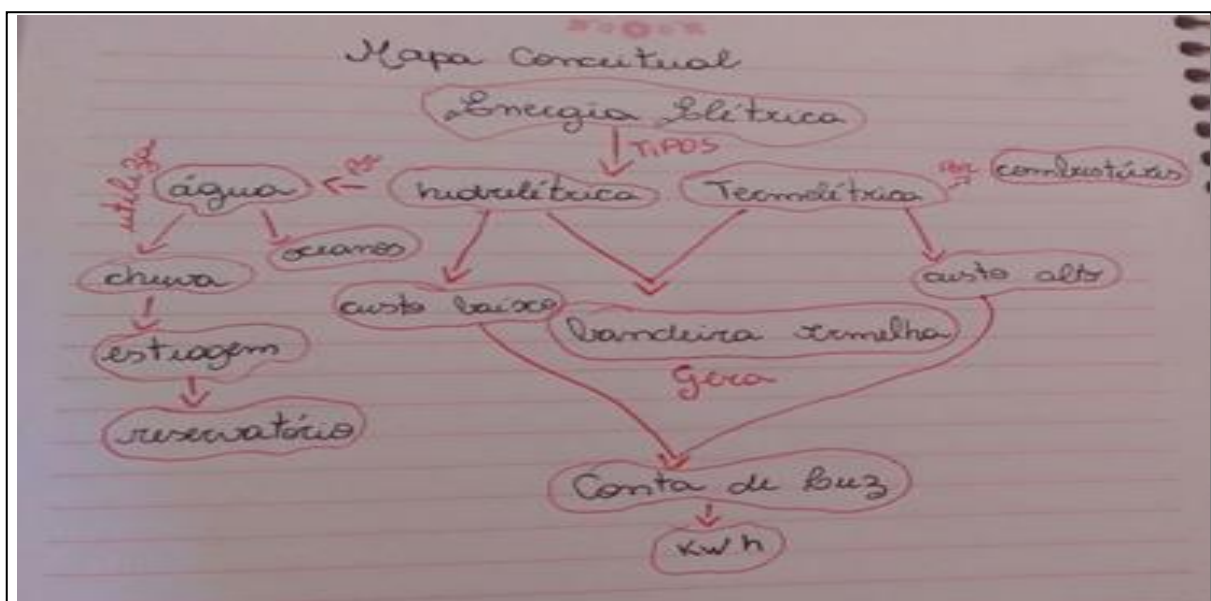 Mapa Conceitual
Energia Elétrica
TiPOS
utiliza água hidrelétrica Termelétrica combustíveis
oceanos
chuva custo alto
custo baixo
bandeira vermelha
estiagem
Gera
reservatório
Conta de Luz
Kwh